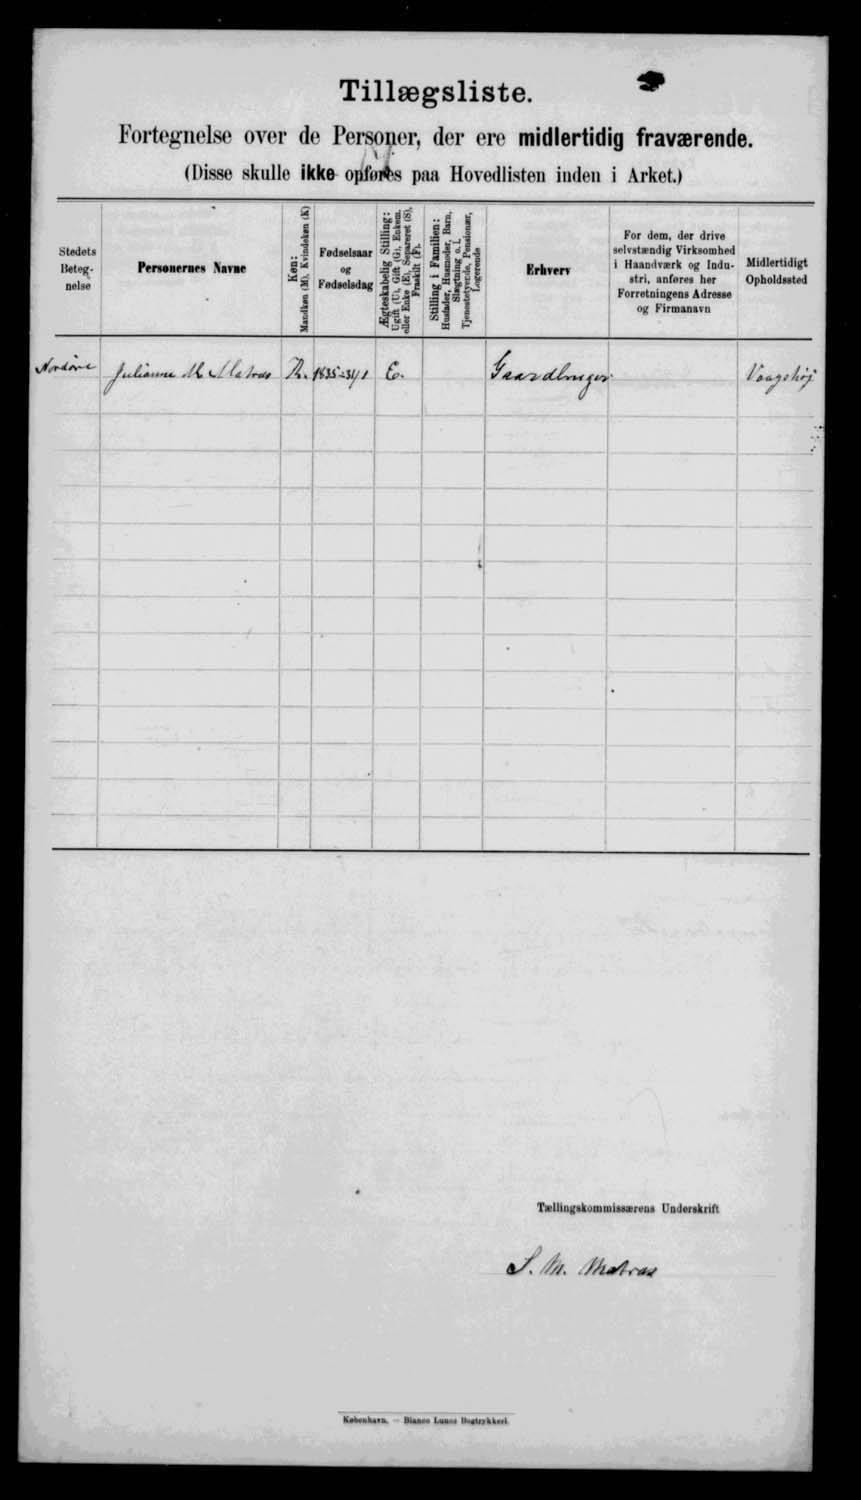 Tillægsliste.
Fortegnelse over de Personer, der ere midlertidig fraværende.
(Disse skulle ikke opføres paa Hovedlisten inden i Arket.)
Stedets
Beteg-
nelse
Personernes Navne
Køn:
Mandkøn (M), Kvindekøn (K)
Fødselsaar
og
Fødselsdag
Ægteskabelig Stilling:
Ugift (U), Gift (G), Enkem.
eller Enke (E), Separeret (S),
Fraskilt (F).
Stilling i Familien:
Husfader, Husmoder, Barn,
Slægtning o. l.
Tjenestetyende, Pensionær,
Logerende
Erhverv
For dem, der drive
selvstændig Virksomhed
i Haandværk og Indu-
stri, anføres her
Forretningens Adresse
og Firmanavn
Midlertidigt
Opholdssted
Nordøre Julianne M. Matras K. 1835 E. Gaardbruger
Tællingskommissærens Underskrift
S. M. Matras
København. — Bianco Lunos Bogtrykkeri.